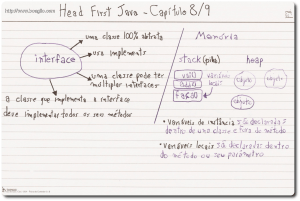 Head First Java - Capítulo 8/9
uma classe 100% abstrata
interface
usa implements
uma classe pode ter
multiplas interfaces
a classe que implementa a interface
deve implementar todos os seus métodos
Memória
stack (pilha)
heap
variáveis
locais
objeto
objeto
objeto
• variáveis de instância são declaradas
dentro de uma classe e fora do método
• variáveis locais são declaradas dentro
do método ou seu parâmetro